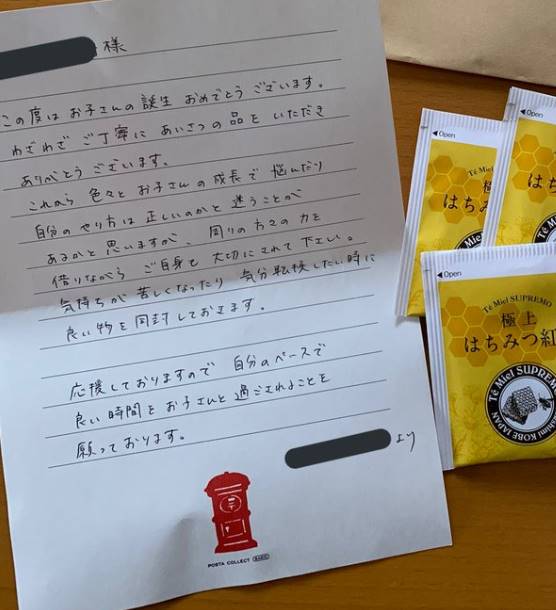 様
この度はお子さんの誕生おめでとうございます。
わざわざご丁寧にあいさつの品をいただき
ありがとうございます。
これから色々とお子さんの成長で悩んだり
自分のやり方は正しいのかと迷うことが
あるかと思いますが、周りの方々の力を
借りながらご自身も大切にされて下さい。
気持ちが苦しくなったり気分転換したい時に
良い物を同封しておきます。
応援しておりますので自分のペースで
良い時間をお子さんと過ごされることを
願っております。
より
POSTA COLLECT
◀Open
Té Miel SUPREMO
極上
はちみつ紅
Té Miel SUPREMO
KOBE JAPAN
◀Open
Té Miel
極上
はちみつ
Té Miel SUPR
◀Open
は
Té M